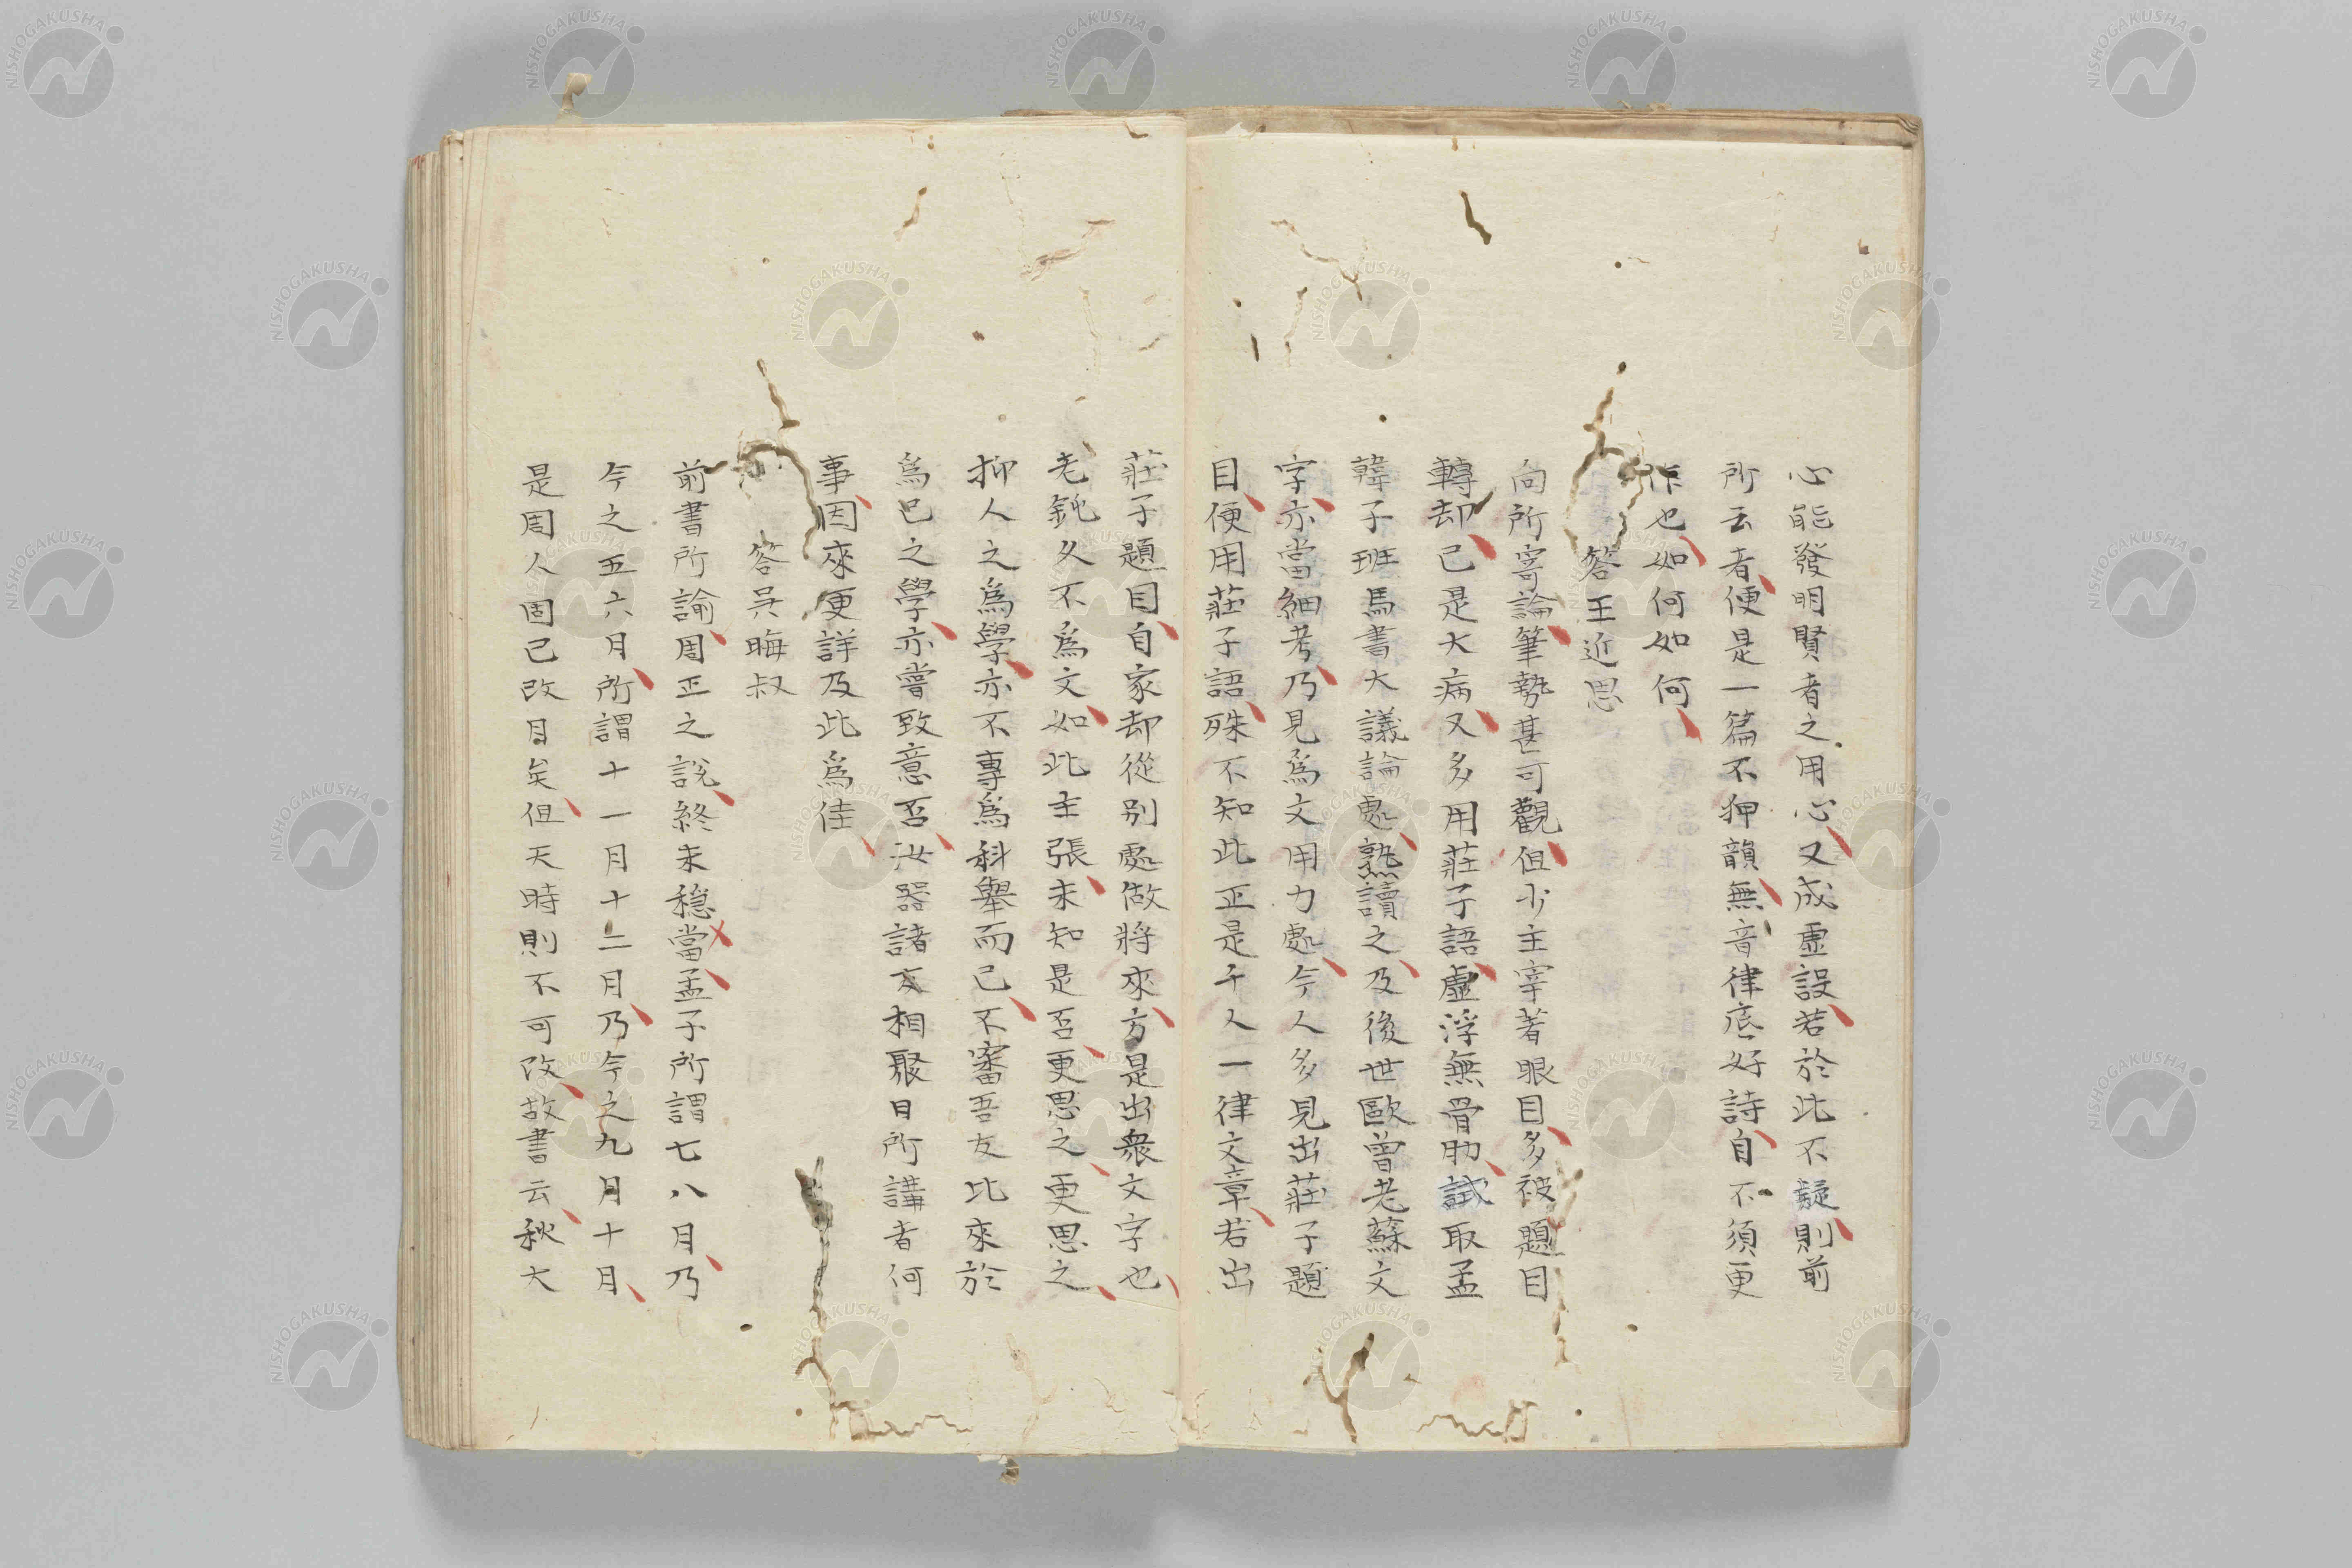 心能發明賢者之用心又成虛設若於此不疑則前
所云者便是一篇不狎韻無音律底好詩自不須更
作也如何如何
答王近思
向所寄論筆勢甚可觀但少主宰著眼目多被題目
轉却已是大病又多用莊子語虛浮無骨肋試取孟
韓子班馬書大議論處熟讀之及後世歐曾老蘇文
字亦當細考乃見爲文用力處今人多見出莊子題
目便用莊子語殊不知此正是千人一律文章若出
莊子題目自家却從別處做將來方是出衆文字也
老鈍久不爲文如此主張未知是否更思之更思之
抑人之爲學亦不專爲科舉而已不審吾友比來於
爲己之學亦嘗致意否汝器諸友相聚日所講者何
事因來更詳及此爲佳
答吳晦叔
前書所諭周正之說終未穩當孟子所謂七八月乃
今之五六月所謂十一月十二月乃今之九月十月
是周人固已改月矣但天時則不可改故書云秋大
NISHOGAKUSHA